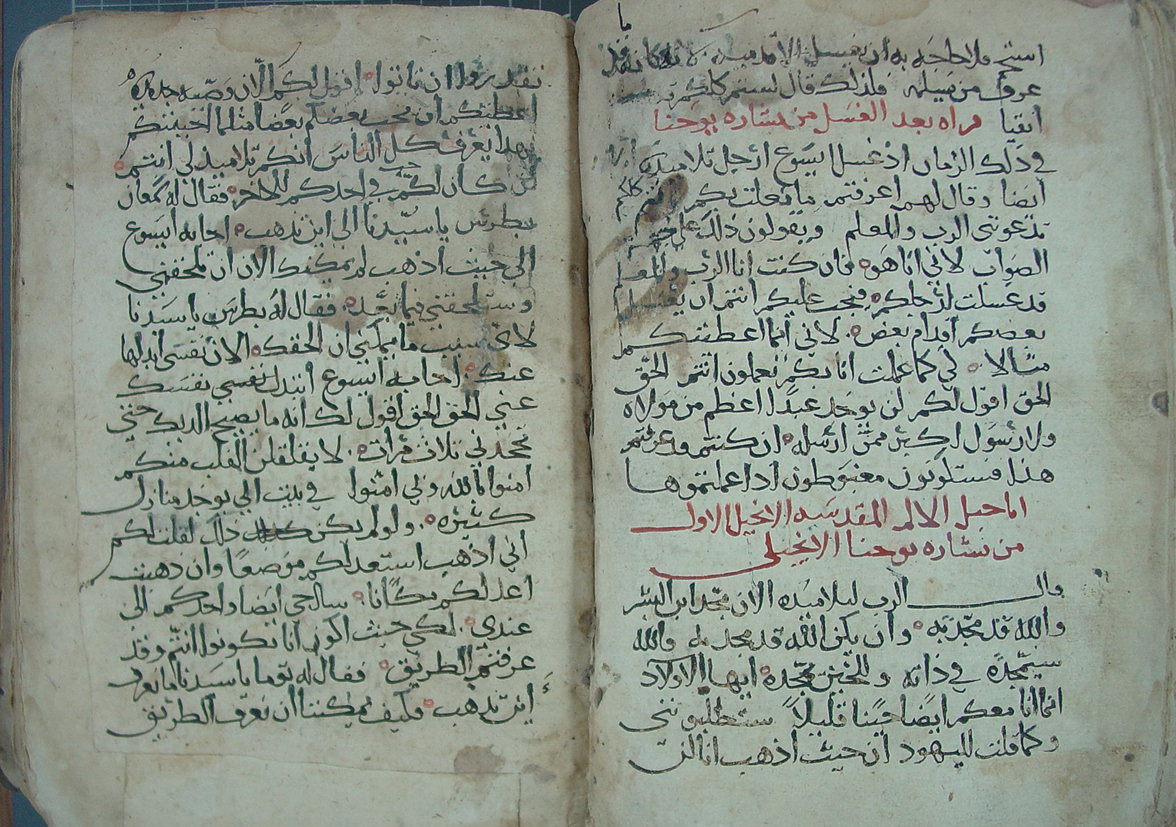 استحم فلا حاجة به ان يغسل الا قدميه لانه كله نقي
عروف من يسلمه فلذلك قال لستم كلكم
انقيا قراه بعد الغسل من بشاره يوحنا
في ذلك الزمان اذ غسل ايسوع ارجل تلاميذه
ايضا وقال لهم اعرفتم ما فعلت بكم انتم
تدعونني الرب والمعلم ويقولون ذلك علي جهة
الصواب لاني انا هو فان كنت انا الرب والمعلم
قد غسلت ارجلكم فيجب عليكم انتم ان يغسل
بعضكم اقدام بعض لاني انما اعطيتكم
مثالا لكي كما عملت انا بكم تعملون انتم الحق
الحق اقول لكم لن يوجد عبدًا اعظم من مولاه
ولا رسول اكبر ممن ارسله ان كنتم قد عرفتم
هذا فستكونون مغبوطون اذا عملتموها
اناجيل الالام المقدسه الانجيل الاول
من بشاره يوحنا الانجيلي
قال الرب لتلاميذه الان مجد ابن البشر
والله قد مجد به وان يكن الله قد مجد به والله
سيمجده في ذاته وللحين مجده ايها الاولاد
انما انا معكم ايضا حينا قليلاً ستطلبونني
وكما قلت لليهود ان حيث اذهب انا لن
تقدروا ان تاتوا اقول لكم الان وصيه جديده
اعطيكم ان يحب بعضكم بعضا مثلما احببتكم
بهذا يعرف كل الناس انكم تلاميذ لي انتم
ان كان لكم حب في احدكم للاخر فقال له سمعان
بطرس يا سيدنا الي اين تذهب اجابه ايسوع
الي حيث اذهب لم يمكنك الان ان تلحقني
وستلحقني فيما بعد فقال له بطرس يا سيدنا
لاي سبب ما يمكني ان الحقك الان نفسي ابدلها
عنك اجابه ايسوع اتبدل نفسي نفسك
عني الحق الحق اقول لك انه ما يصيح الديك حتي
تجحدني ثلاث مرات لا يقلقلن القلب منكم
امنوا بالله وبي امنوا في بيت ابي يوجد منازل
كثيره ولو لم يكن ذلك لقلت لكم
اني اذهب استعد لكم موضعا وان ذهبت
اعد لكم مكانا ساجي ايضا واخدكم الي
عندي لكي حيث اكون انا تكونوا انتم وقد
عرفتم الطريق فقال له توما يا سيدنا ما نعرف
اين تذهب فكيف يمكننا ان نعرف الطريق